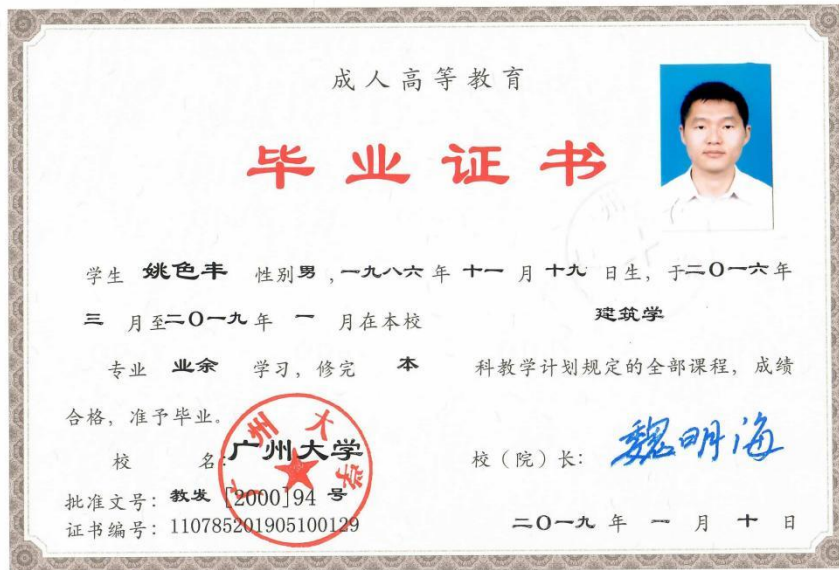 成人高等教育
毕业证书
学生 姚色丰 性别男，一九八六年 十一 月 十九 日生，于二〇一六年
三 月至二〇一九年 一 月在本校 建筑学
专业 业余 学习，修完 本 科教学计划规定的全部课程，成绩
合格，准予毕业。
校 名：广州大学 校（院）长：魏明海
广州大学
批准文号：教发 [2000]94 号
证书编号：110785201905100129
二〇一九 年 一 月 十 日